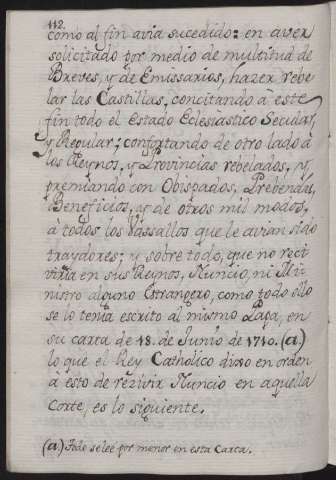 112.
como al fin avia sucedido: en aver
solicitado por medio de multitud de
Breves, y de Emissarios, hazer rebe
lar las Castillas, concitando à este
fin todo el Estado Eclesiastico Secular,
y Regular; confortando de otro lado à
los Reynos, y Provincias rebelados, y
premiando con Obispados, Prebendas,
Beneficios, y de otros mil modos,
à todos los Vassallos que le avian sido
traydores; y sobre todo, que no reci
viria en sus Reynos, Nuncio, ni Mi
nistro alguno Estrangero, como todo ello
se lo tenia escrito al mismo Papa, en
su carta de 18. de Junio de 1710. (a.)
lo que el Rey Catholico dixo en orden
a esto de rezivir Nuncio en aquella
Corte, es lo siguiente.
(a.) Todo se lee por menor en esta Carta.